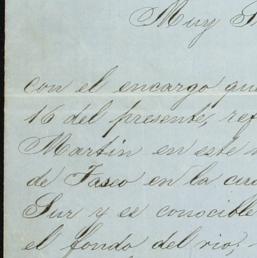 Muy
con el encargo que
16 del presente, ref
Martin en este
de Paseo en la
Sur y es conocible
el fondo del rio,